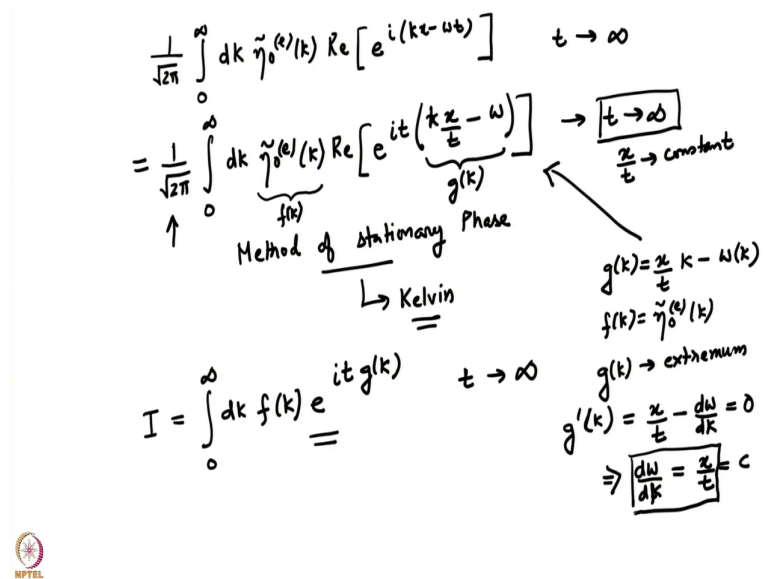 1/√2π ∫₀^∞ dk η̃₀⁽ᵉ⁾(k) Re[e^{i(kx-ωt)}] t → ∞
= 1/√2π ∫₀^∞ dk η̃₀⁽ᵉ⁾(k) Re[e^{it(k x/t - ω)}] → t → ∞
x/t → constant
f(k)
g(k)
↑
Method of stationary Phase
↳ Kelvin
g(k) = x/t k - ω(k)
f(k) = η̃₀⁽ᵉ⁾(k)
g(k) → extremum
I = ∫₀^∞ dk f(k) e^{it g(k)} t → ∞
g'(k) = x/t - dω/dk = 0
⇒ dω/dk = x/t = c
NPTEL